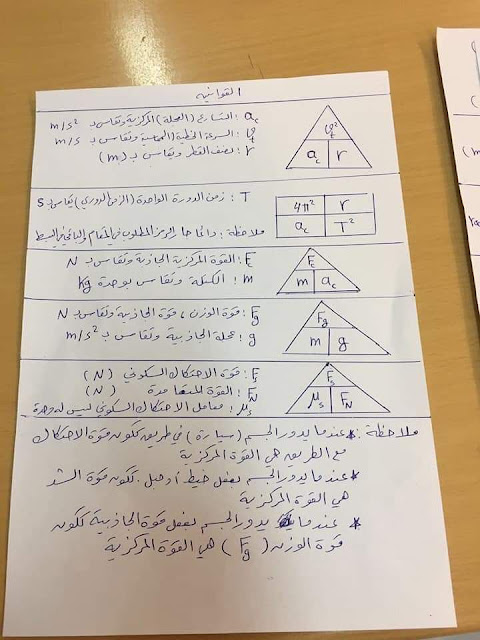 القوانين
ac : التسارع (العجلة) المركزية وتقاس بـ m/s²
vt : السرعة الخطية (المماسية) وتقاس بـ m/s
r : نصف القطر وتقاس بـ (m)
vt²
ac r
T : زمن الدورة الواحدة (الزمن الدوري) يقاس بـ s
ملاحظة : دائما جار الرمز المطلوب في المقام والباقي في البسط
4π² r
ac T²
Fc : القوة المركزية الجاذبة وتقاس بـ N
m : الكتلة وتقاس بوحدة Kg
Fc
m ac
Fg : قوة الوزن ، قوة الجاذبية وتقاس بـ N
g : عجلة الجاذبية وتقاس بـ m/s²
Fg
m g
Fs : قوة الاحتكاك السكوني (N)
FN : القوة المتعامدة (N)
μs : معامل الاحتكاك السكوني ليس له وحدة
Fs
μs FN
ملاحظة : * عندما يدور الجسم (سيارة) في طريق تكون قوة الاحتكاك
مع الطريق هي القوة المركزية
* عندما يدور الجسم بفعل خيط أو حبل . تكون قوة الشد
هي القوة المركزية
* عندما يدور الجسم بفعل قوة الجاذبية تكون
قوة الوزن (Fg) هي القوة المركزية